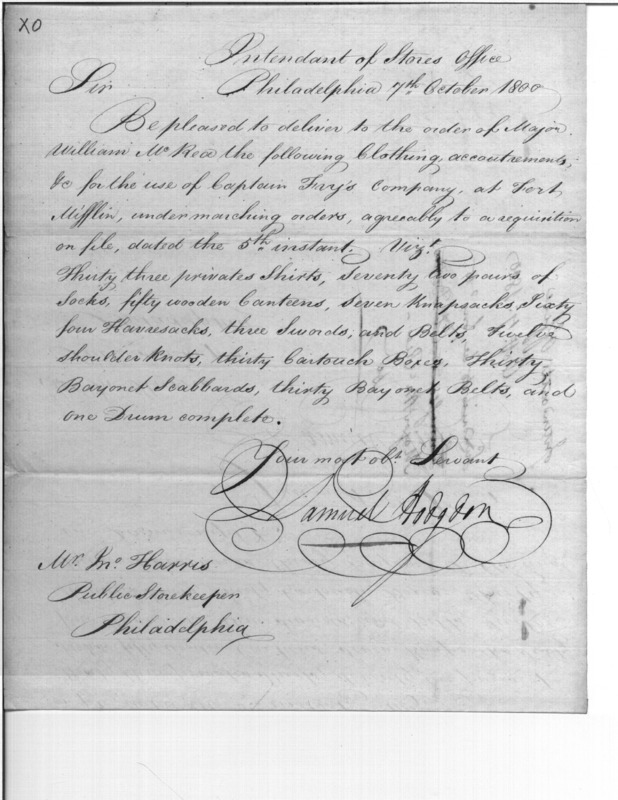 XO
Intendant of Stores Office
Sir Philadelphia 7th October 1800
Be pleased to deliver to the order of Major
William McRea the following Clothing, accoutrements,
&c for the use of Captain Fry's Company, at Fort
Mifflin, under marching orders, agreeably to a requisition
on file, dated the 5th instant. Vizt
Thirty three privates Shirts, Seventy two pairs of
Socks, fifty wooden Canteens, Seven Knapsacks, Sixty
four Havresacks, three Swords, and Belts, Twelve
shoulder Knots, thirty Cartouch Boxes, Thirty
Bayonet Scabbards, thirty Bayonet Belts, and
one Drum complete.
Your most obt. Servant
Samuel Hodgdon
Mr. Jno. Harris
Public Storekeeper
Philadelphia